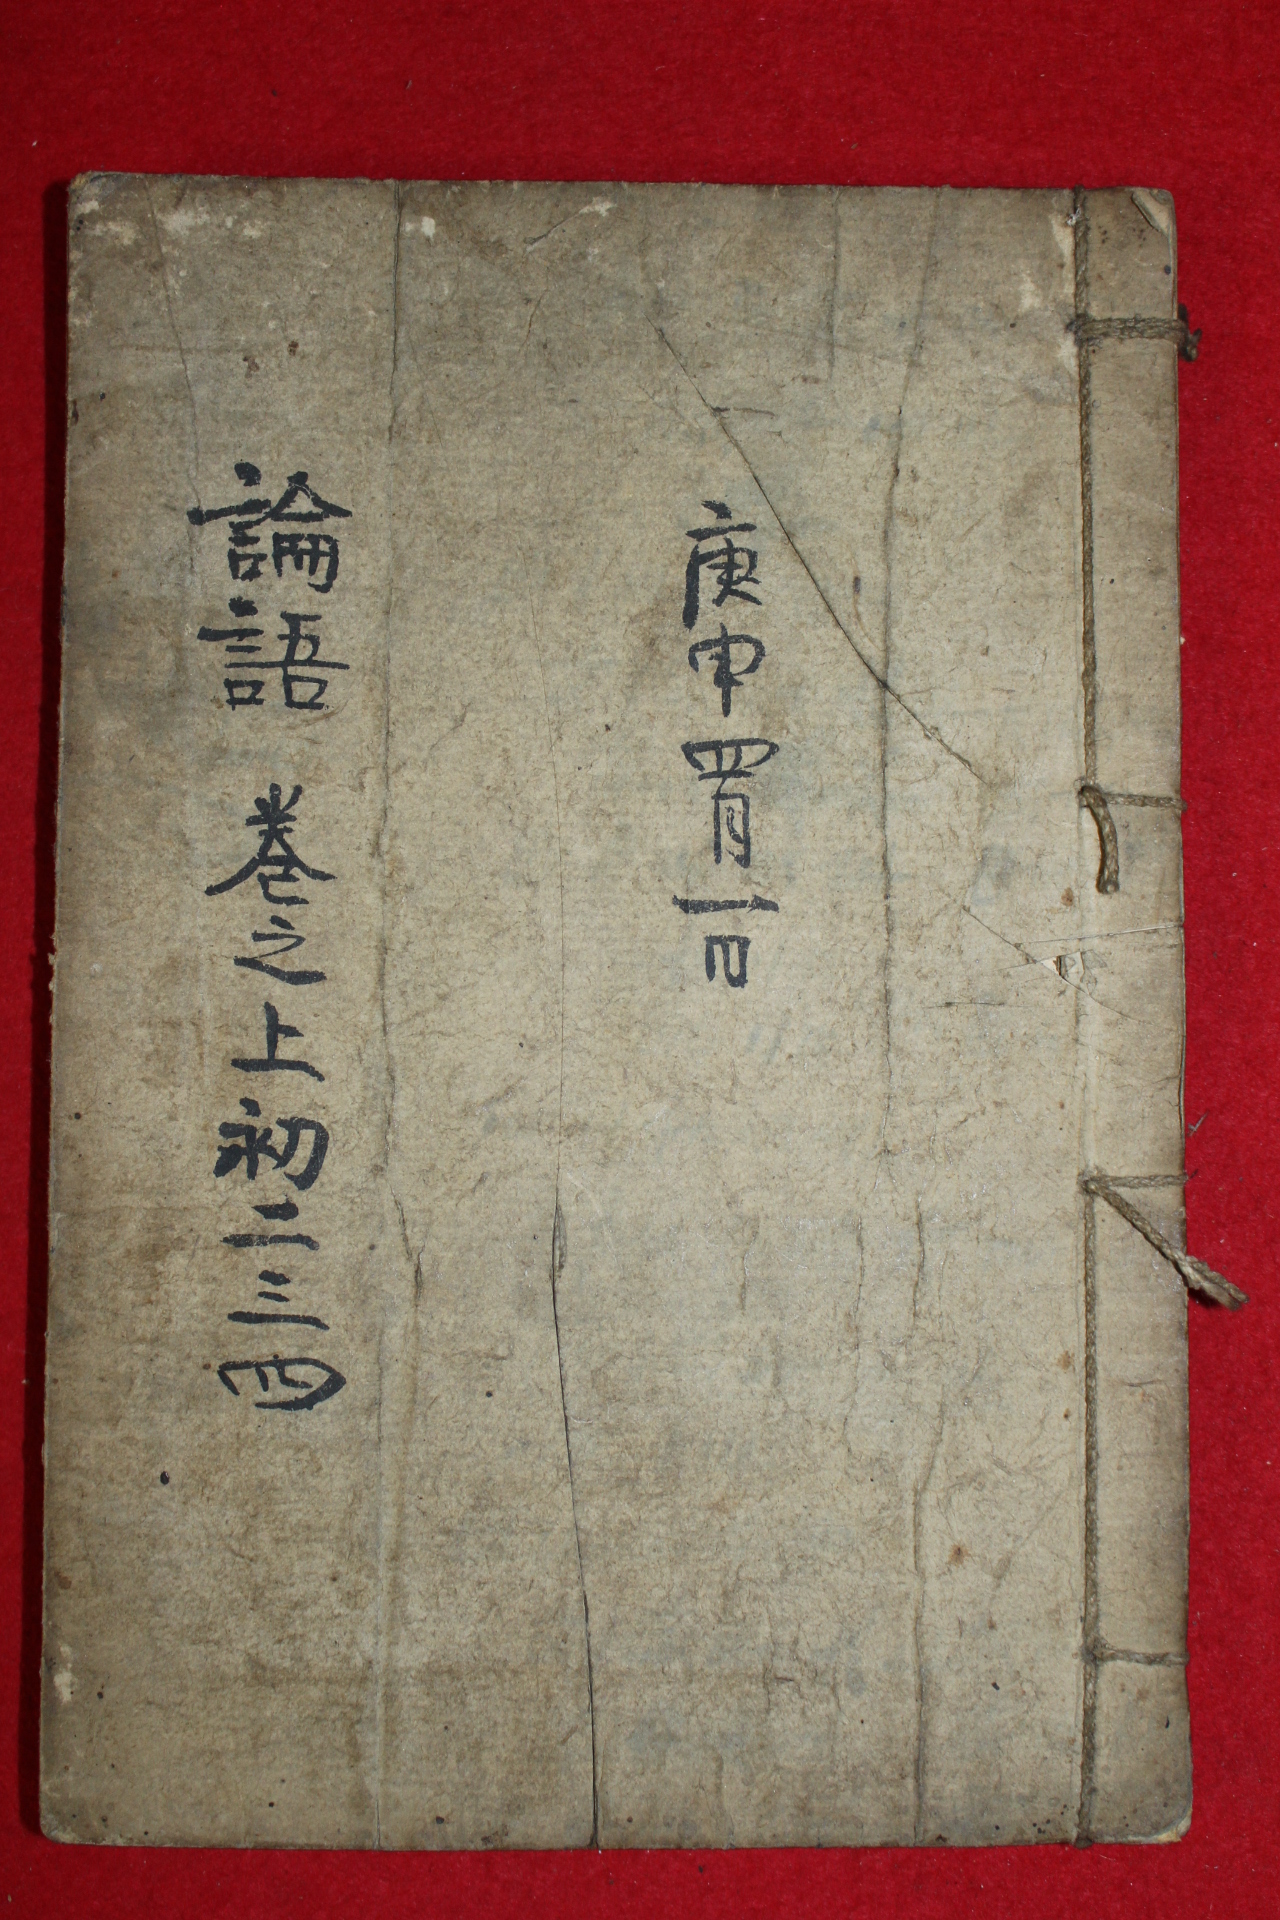 庚申四月一日
論語 巻之上初二三四